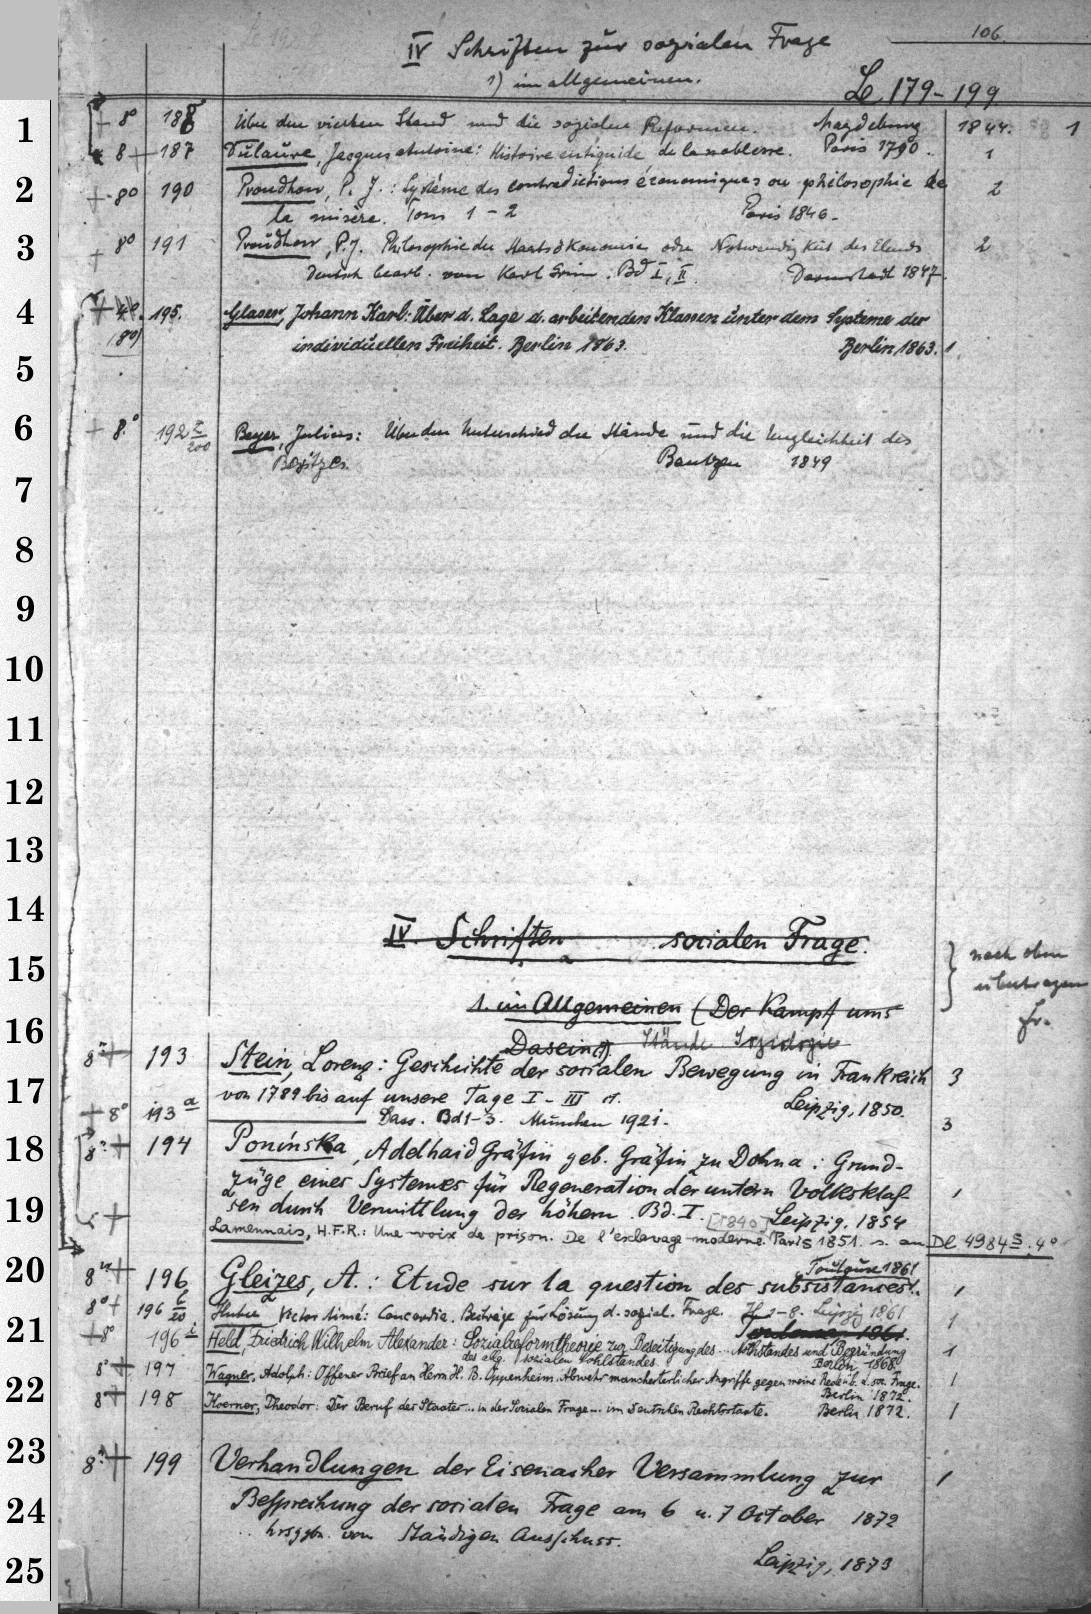 106.
IV Schriften zur sozialen Frage
1) im allgemeinen.
L 179-199
1 + 8° 188 Über den vierten Stand und die sozialen Reformen. Magdeburg 1844. 1
8 + 187 Dulaure, Jacques Antoine: Histoire critique de la noblesse. Paris 1790. 1
2 + 8° 190 Proudhon, P. J.: Système des contradictions économiques ou philosophie de 2
la misère. Tom 1-2 Paris 1846.
3 + 8° 191 Proudhon, P. J. Philosophie der Staatsökonomie oder Notwendigkeit des Elends 2
Deutsch bearb. von Karl Grün. Bd I, II Darmstadt 1847.
4 + 4° 195. Glaser, Johann Karl: Über d. Lage d. arbeitenden Klassen unter dem Systeme der
(8°) individuellen Freiheit. Berlin 1863. Berlin 1863. 1
5
6 + 8.° 192 z/200 Beyer, Julius: Über den Unterschied der Stände und die Ungleichheit des
Besitzes. Bautzen 1849
7
8
9
10
11
12
13
14
IV. Schriften sozialen Frage.
15 nach oben
übertragen
Fr.
1. im Allgemeinen (Der Kampf ums
16 Dasein). Stände Soziologie
8° + 193 Stein, Lorenz: Geschichte der socialen Bewegung in Frankreich 3
17 von 1789 bis auf unsere Tage I-III Leipzig, 1850.
+ 8° 193 a Dass. Bd 1-3. München 1921. 3
18 8° + 194 Poninska, Adelhaid Gräfin geb. Gräfin zu Dohna: Grund-
züge eines Systemes für Regeneration der untern Volksklas- 1
19 + sen durch Vermittlung der höhern. Bd. I. [1890] Leipzig. 1854
Lamennais, H.F.R.: Une voix de prison. De l'esclavage moderne. Paris 1851. s. an Dl 4984 s. 4°
Toulouse 1861
20 8° + 196 Gleizes, A.: Etude sur la question des subsistances. 1
8° + 196 b/20 Huber, Victor Aimé: Concordia. Beiträge zur Lösung d. sozial. Frage. H. 1-8. Leipzig 1861 1
21 + 8° 196 i Held, Friedrich Wilhelm Alexander: Sozialreformtheorie zur Beseitigung des Nothstandes und Begründung 1
des allg. sozialen Wohlstandes. Berlin 1868.
8° + 197 Wagner, Adolph: Offener Brief an Herrn H. B. Oppenheim. Abwehr manchesterlicher Angriffe gegen meine Rede üb. d. soz. Frage. 1
22 Berlin 1872.
8° + 198 Koerner, Theodor: Der Beruf des Staates... in der Socialen Frage... im deutschen Rechtsstaate. Berlin 1872. 1
23 8° + 199 Verhandlungen der Eisenacher Versammlung zur 1
24 Besprechung der socialen Frage am 6 u. 7 October 1872
hrsggbn. von Ständigen Ausschuss.
25 Leipzig, 1873